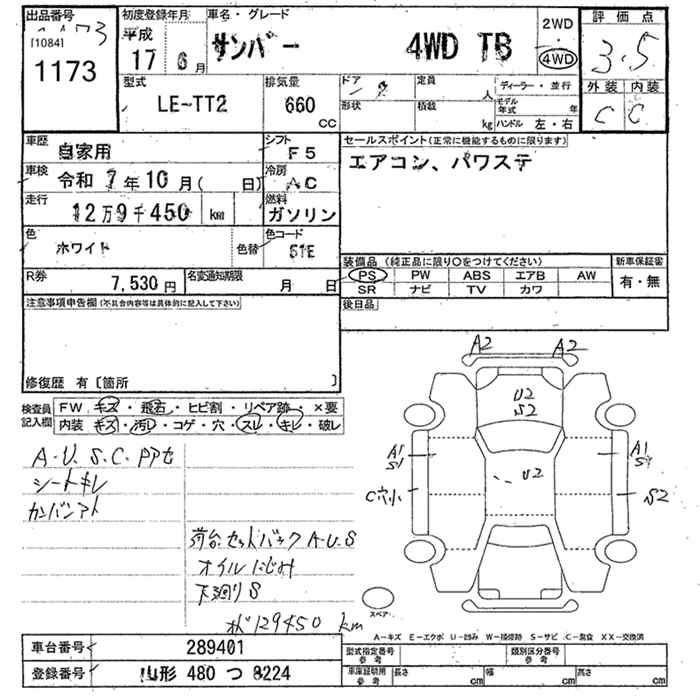 出品番号
[1084]
1173
初度登録年月
平成
17 6月
車名・グレード
サンバー 4WD TB
2WD
・
4WD
評価点
3.5
外装 内装
C C
型式
LE-TT2
排気量
660
CC
ドア
形状
定員
人
積載
kg
ディーラー・並行
モデル年式 年
ハンドル 左・右
車歴
自家用
シフト
F5
車検
令和 7年10月( 日)
冷房
AC
走行
12万9千450 km
燃料
ガソリン
色
ホワイト
色替
色コード
51E
R券
7,530円
名変通知期限
月 日
セールスポイント(正常に機能するものに限ります)
エアコン、パワステ
装備品(純正品に限り○をつけてください)
PS PW ABS エアB AW
SR ナビ TV カワ
新車保証書
有・無
後日品
注意事項申告欄(不具合内容等は具体的に記入して下さい)
修復歴 有〔箇所 〕
検査員記入欄
FW、キズ・飛石・ヒビ割・リペア跡・×要
内装 キズ・汚レ・コゲ・穴・スレ・キレ・破レ
A.U.S.C.PPセ
シートキレ
カンバンアト
荷台セットバックA.U.S
オイルにじみ
下廻りS
129450 km
A2 A2
U2
S2
A1
S1
A1
U2
C穴小
S2
スペア
A-キズ E-エクボ U-凹み W-補修跡 S-サビ C-腐食 XX-交換済
車台番号
289401
登録番号
山形 480 つ 8224
型式指定番号
参考
類別区分番号
参考
車庫証明用
参考
長さ cm
幅 cm
高さ cm